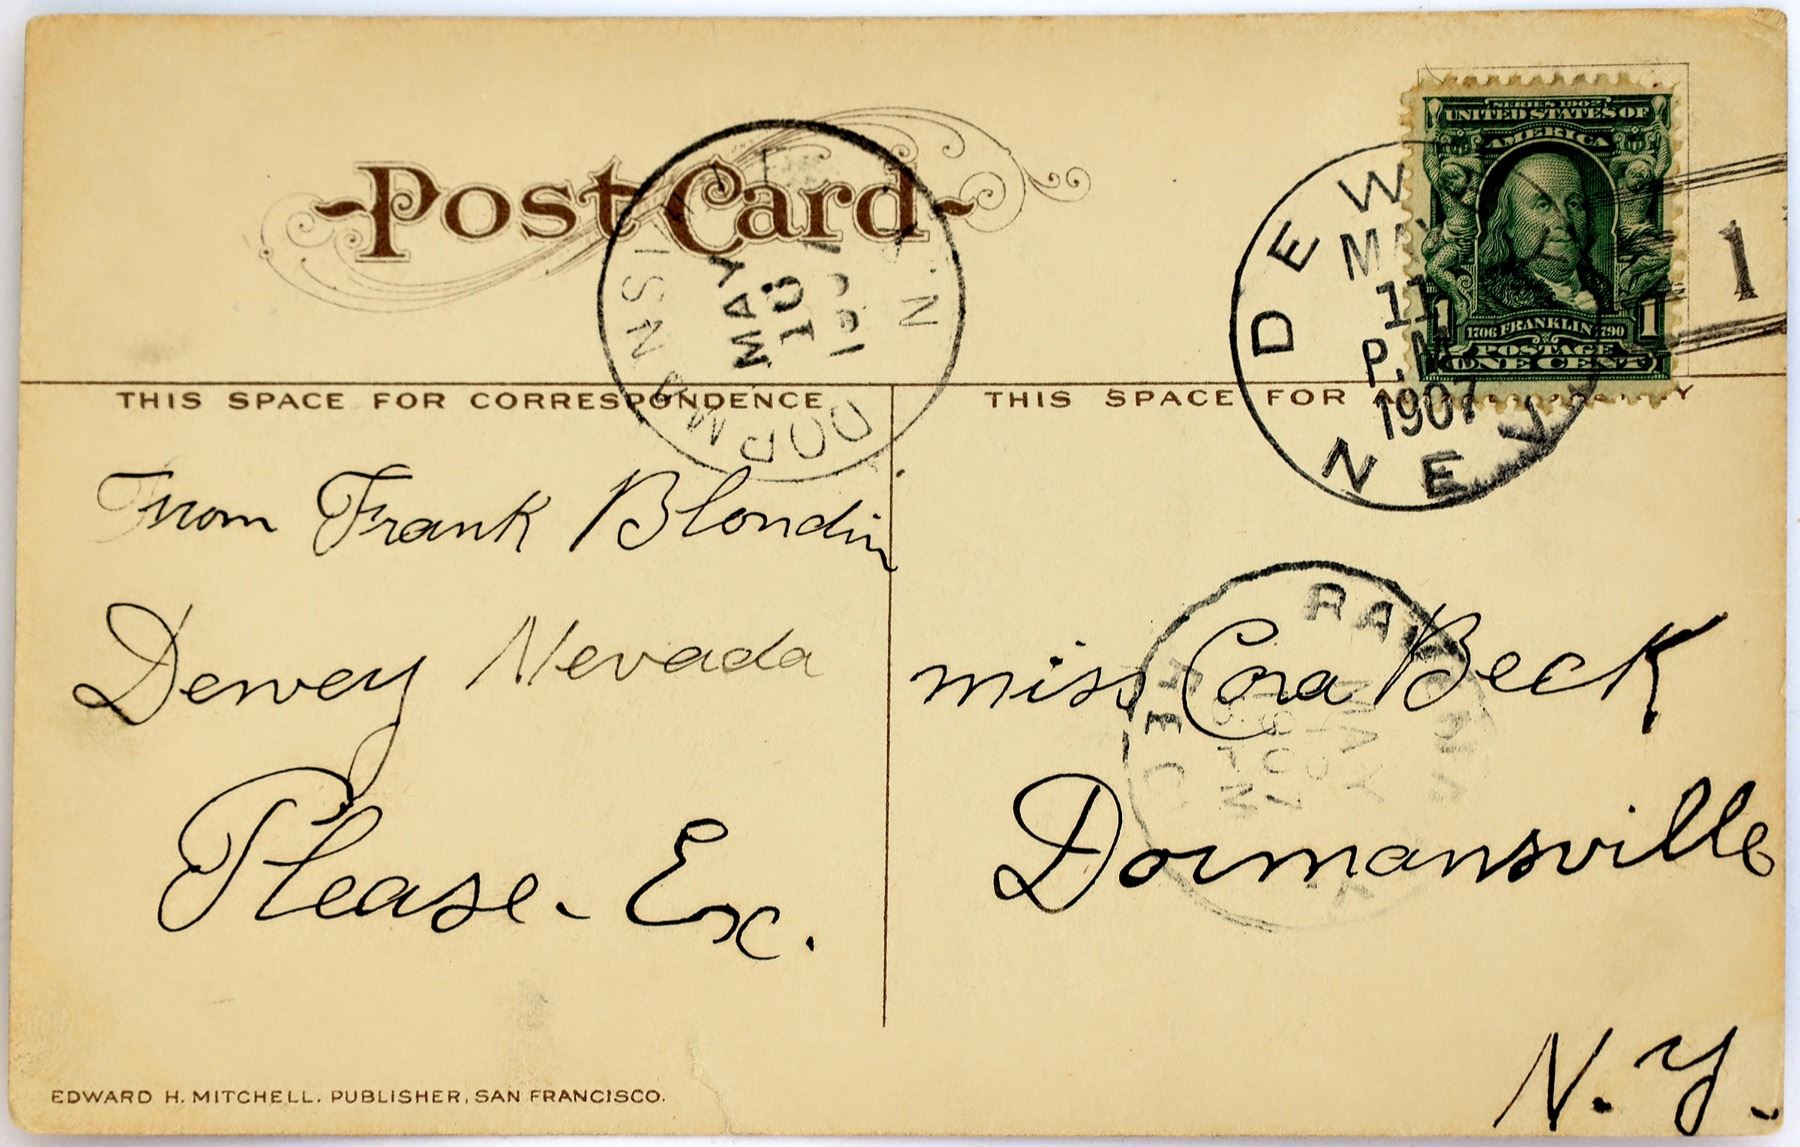 Post Card
SERIES 1902
UNITED STATES OF
AMERICA
1706 FRANKLIN 1790
1 1
POSTAGE
ONE CENT
DEWEY
MAY
11
P.M
1907
NEV.
1
DORMANSVI N.Y
MAY
1907
THIS SPACE FOR CORRESPONDENCE
THIS SPACE FOR
From Frank Blondin
Dewey Nevada
Please - Ex.
RAVENA
MAY
1907
PM
REC'D
miss Cora Beck
Dormansville
N. Y.
EDWARD H. MITCHELL, PUBLISHER, SAN FRANCISCO.